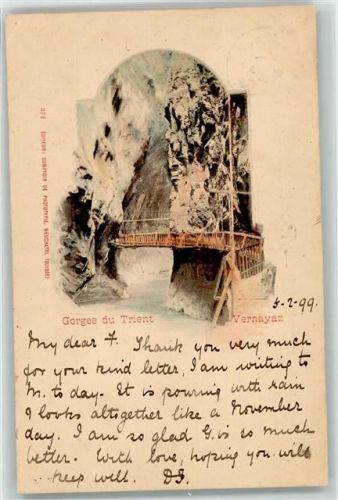 373 EDITEUR: COMPTOIR DE PHOTOTYPIE, NEUCHATEL (SUISSE)
Gorges du Trient Vernayaz
4-2-99.
My dear F. Thank you very much
for your kind letter, I am writing to
M. to day. It is pouring with rain
& looks altogether like a November
day. I am so glad G. is so much
better. With love, hoping you will
keep well. DS.